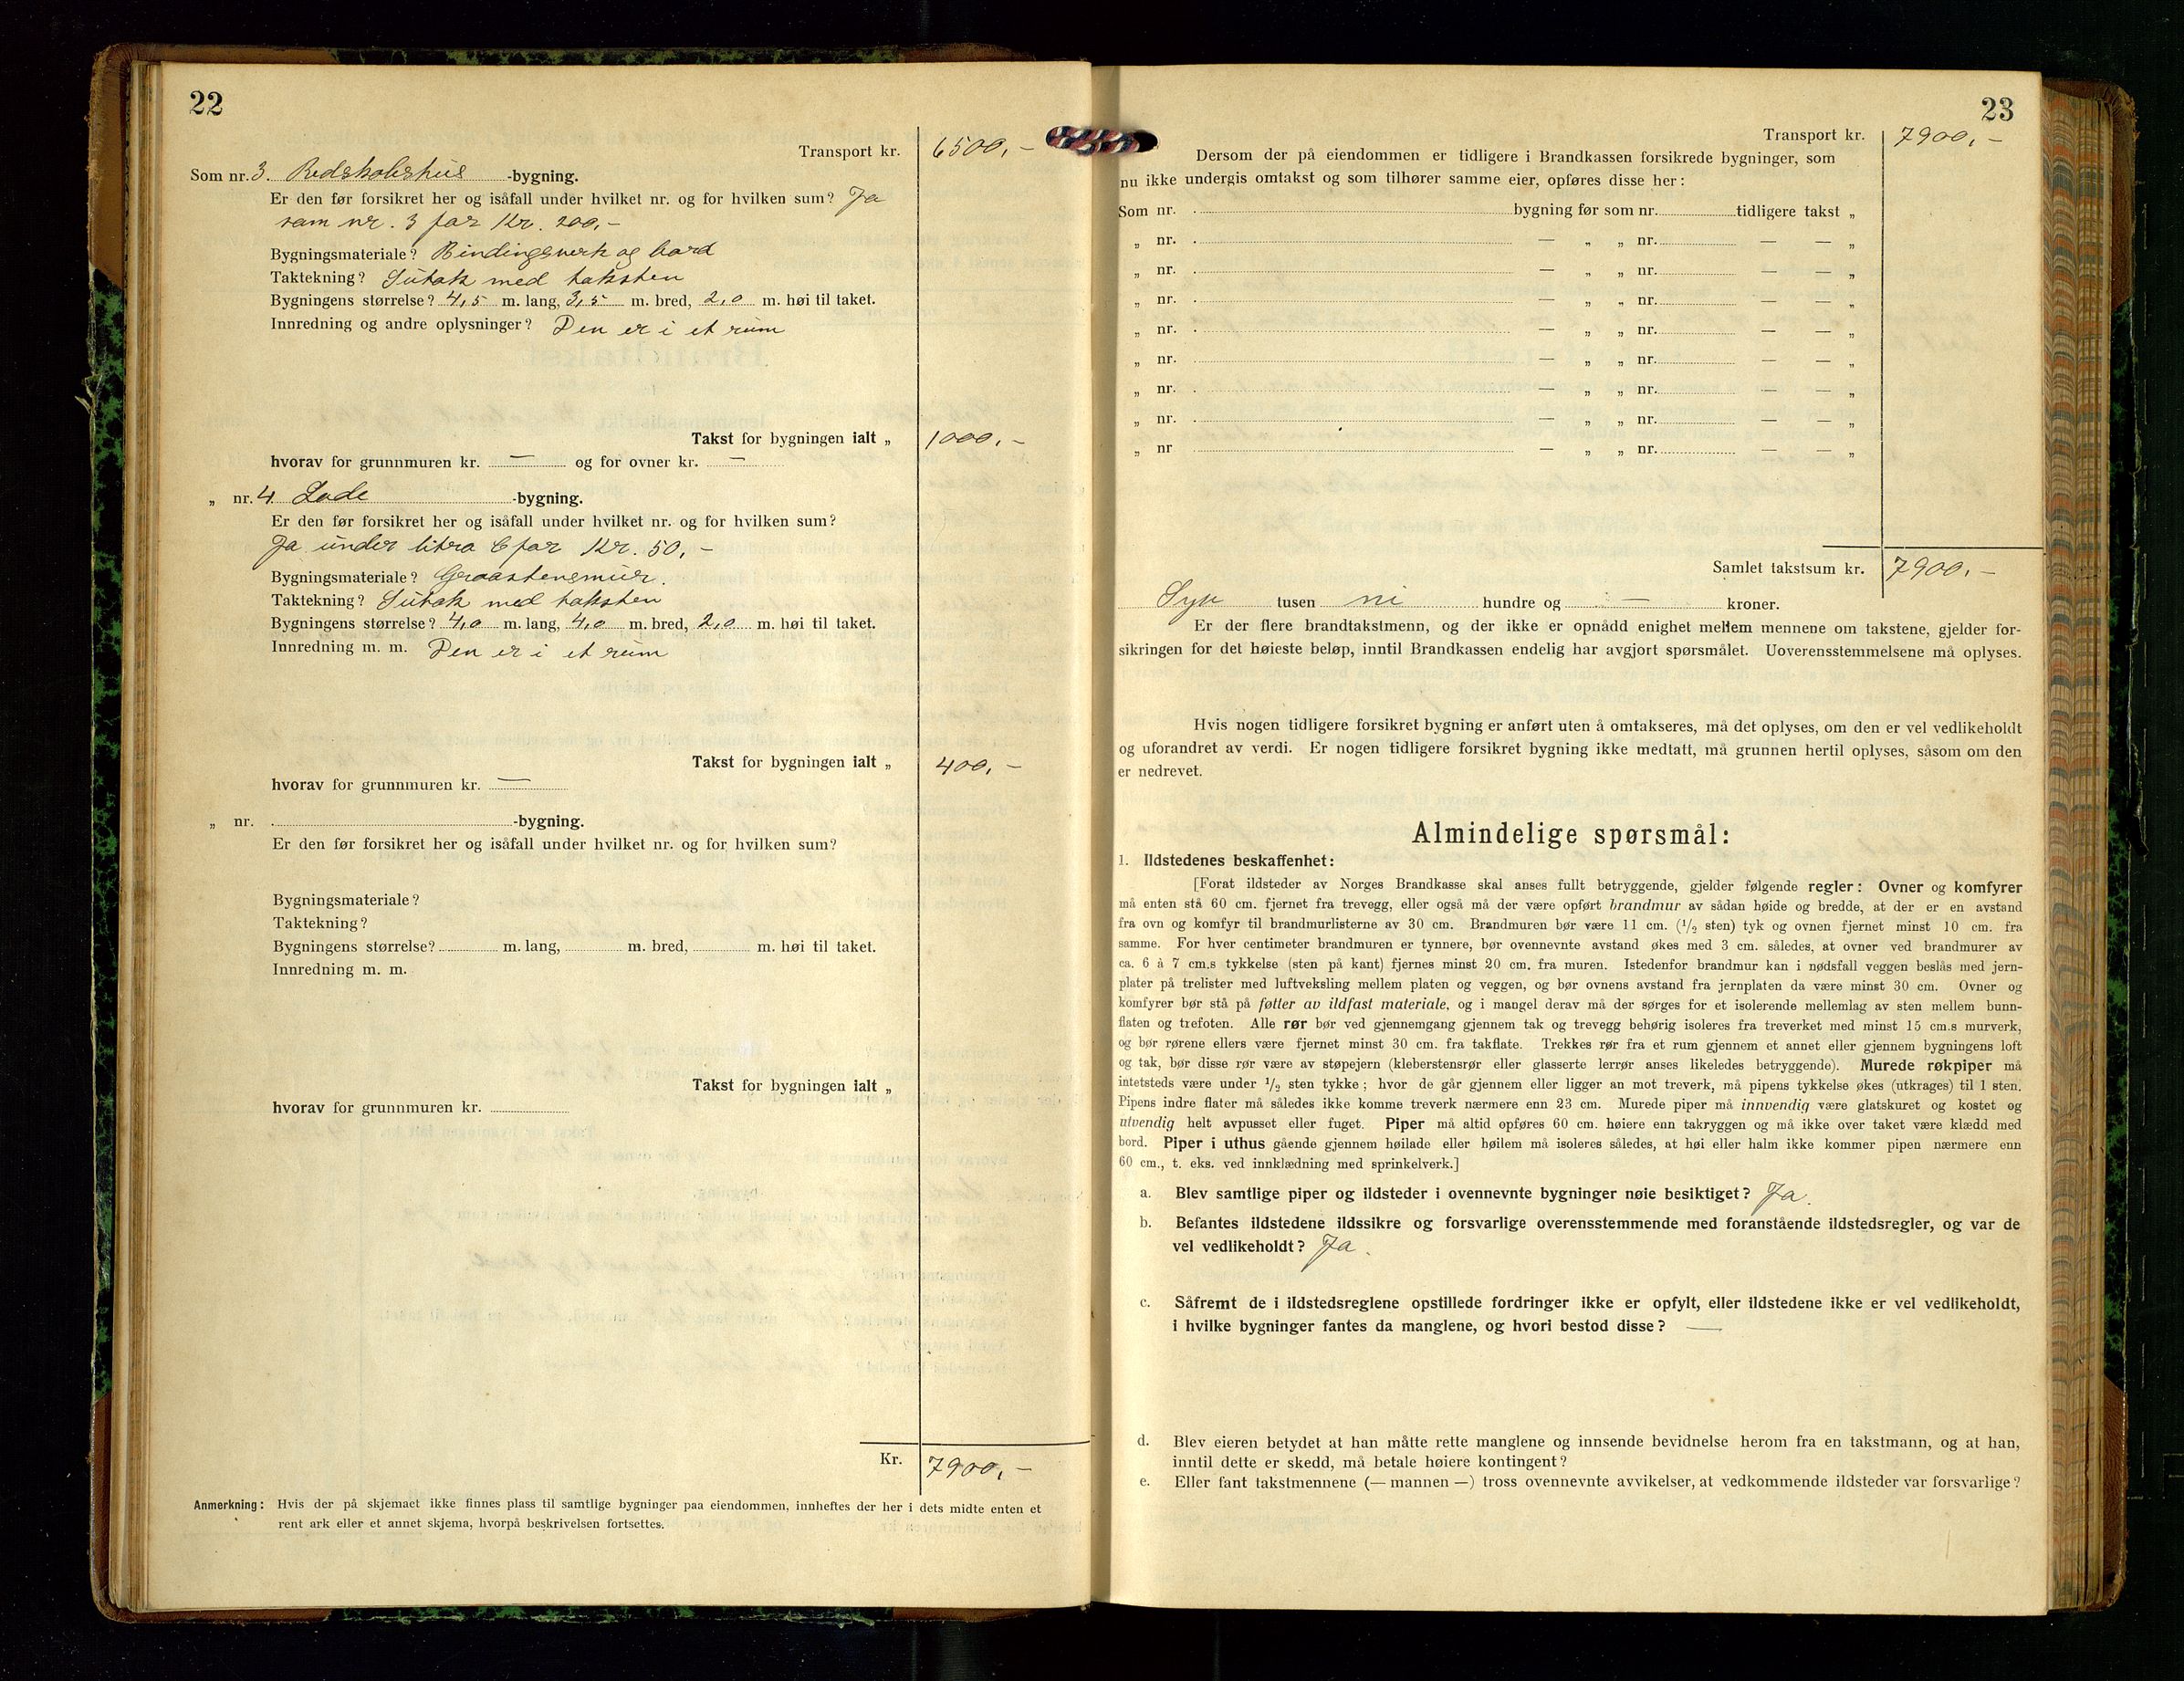 22
Transport kr. 6500,-
Som nr. 3. Redskabshus -bygning.
Er den før forsikret her og isåfall under hvilket nr. og for hvilken sum? Ja
som nr. 3 for Kr. 200,-
Bygningsmateriale? Bindingsverk og bord
Taktekning? Sutak med taksten
Bygningens størrelse? 4,5 m. lang, 3,5 m. bred, 2,0 m. høi til taket.
Innredning og andre oplysninger? Den er i et rum
Takst for bygningen ialt „ 1000,-
hvorav for grunnmuren kr. — og for ovner kr. —
„ nr. 4 Lade -bygning.
Er den før forsikret her og isåfall under hvilket nr. og for hvilken sum?
Ja under litra C for Kr. 50,-
Bygningsmateriale? Graastensmur.
Taktekning? Sutak med taksten
Bygningens størrelse? 4,0 m. lang, 4,0 m. bred, 2,0 m. høi til taket.
Innredning m. m. Den er i et rum
Takst for bygningen ialt „ 400,-
hvorav for grunnmuren kr. —
„ nr. -bygning.
Er den før forsikret her og isåfall under hvilket nr. og for hvilken sum?
Bygningsmateriale?
Taktekning?
Bygningens størrelse? m. lang, m. bred, m. høi til taket.
Innredning m. m.
Takst for bygningen ialt „
hvorav for grunnmuren kr.
Kr. 7900,-
Anmerkning: Hvis der på skjemaet ikke finnes plass til samtlige bygninger paa eiendommen, innheftes der her i dets midte enten et
rent ark eller et annet skjema, hvorpå beskrivelsen fortsettes.
23
Transport kr. 7900,-
Dersom der på eiendommen er tidligere i Brandkassen forsikrede bygninger, som
nu ikke undergis omtakst og som tilhører samme eier, opføres disse her:
Som nr. bygning før som nr. tidligere takst „
„ nr. — „ „ nr. — — „
„ nr. — „ „ nr. — — „
„ nr. — „ „ nr. — — „
„ nr. — „ „ nr. — — „
„ nr. — „ „ nr. — — „
„ nr. — „ „ nr. — — „
„ nr. — „ „ nr. — — „
„ nr — „ „ nr. — — „
Samlet takstsum kr. 7900,-
Syv tusen ni hundre og — kroner.
Er der flere brandtakstmenn, og der ikke er opnådd enighet mellem mennene om takstene, gjelder for-
sikringen for det høieste beløp, inntil Brandkassen endelig har avgjort spørsmålet. Uoverensstemmelsene må oplyses.
Hvis nogen tidligere forsikret bygning er anført uten å omtakseres, må det oplyses, om den er vel vedlikeholdt
og uforandret av verdi. Er nogen tidligere forsikret bygning ikke medtatt, må grunnen hertil oplyses, såsom om den
er nedrevet.
Almindelige spørsmål:
1. Ildstedenes beskaffenhet:
[Forat ildsteder av Norges Brandkasse skal anses fullt betryggende, gjelder følgende regler: Ovner og komfyrer
må enten stå 60 cm. fjernet fra trevegg, eller også må der være opført brandmur av sådan høide og bredde, at der er en avstand
fra ovn og komfyr til brandmurlisterne av 30 cm. Brandmuren bør være 11 cm. (1/2 sten) tyk og ovnen fjernet minst 10 cm. fra
samme. For hver centimeter brandmuren er tynnere, bør ovennevnte avstand økes med 3 cm. således, at ovner ved brandmurer av
ca. 6 à 7 cm.s tykkelse (sten på kant) fjernes minst 20 cm. fra muren. Istedenfor brandmur kan i nødsfall veggen beslås med jern-
plater på trelister med luftveksling mellem platen og veggen, og bør ovnens avstand fra jernplaten da være minst 30 cm. Ovner og
komfyrer bør stå på føtter av ildfast materiale, og i mangel derav må der sørges for et isolerende mellemlag av sten mellem bunn-
flaten og trefoten. Alle rør bør ved gjennemgang gjennem tak og trevegg behørig isoleres fra treverket med minst 15 cm.s murverk,
og bør rørene ellers være fjernet minst 30 cm. fra takflate. Trekkes rør fra et rum gjennem et annet eller gjennem bygningens loft
og tak, bør disse rør være av støpejern (kleberstensrør eller glasserte lerrør anses likeledes betryggende). Murede røkpiper må
intetsteds være under 1/2 sten tykke; hvor de går gjennem eller ligger an mot treverk, må pipens tykkelse økes (utkrages) til 1 sten.
Pipens indre flater må således ikke komme treverk nærmere enn 23 cm. Murede piper må innvendig være glatskuret og kostet og
utvendig helt avpusset eller fuget. Piper må altid opføres 60 cm. høiere enn takryggen og må ikke over taket være klædd med
bord. Piper i uthus gående gjennem høilade eller høilem må isoleres således, at høi eller halm ikke kommer pipen nærmere enn
60 cm., t. eks. ved innklædning med sprinkelverk.]
a. Blev samtlige piper og ildsteder i ovennevnte bygninger nøie besiktiget? Ja.
b. Befantes ildstedene ildssikre og forsvarlige overensstemmende med foranstående ildstedsregler, og var de
vel vedlikeholdt? Ja.
c. Såfremt de i ildstedsreglene opstillede fordringer ikke er opfylt, eller ildstedene ikke er vel vedlikeholdt,
i hvilke bygninger fantes da manglene, og hvori bestod disse? —
d. Blev eieren betydet at han måtte rette manglene og innsende bevidnelse herom fra en takstmann, og at han,
inntil dette er skedd, må betale høiere kontingent?
e. Eller fant takstmennene (— mannen —) tross ovennevnte avvikelser, at vedkommende ildsteder var forsvarlige?